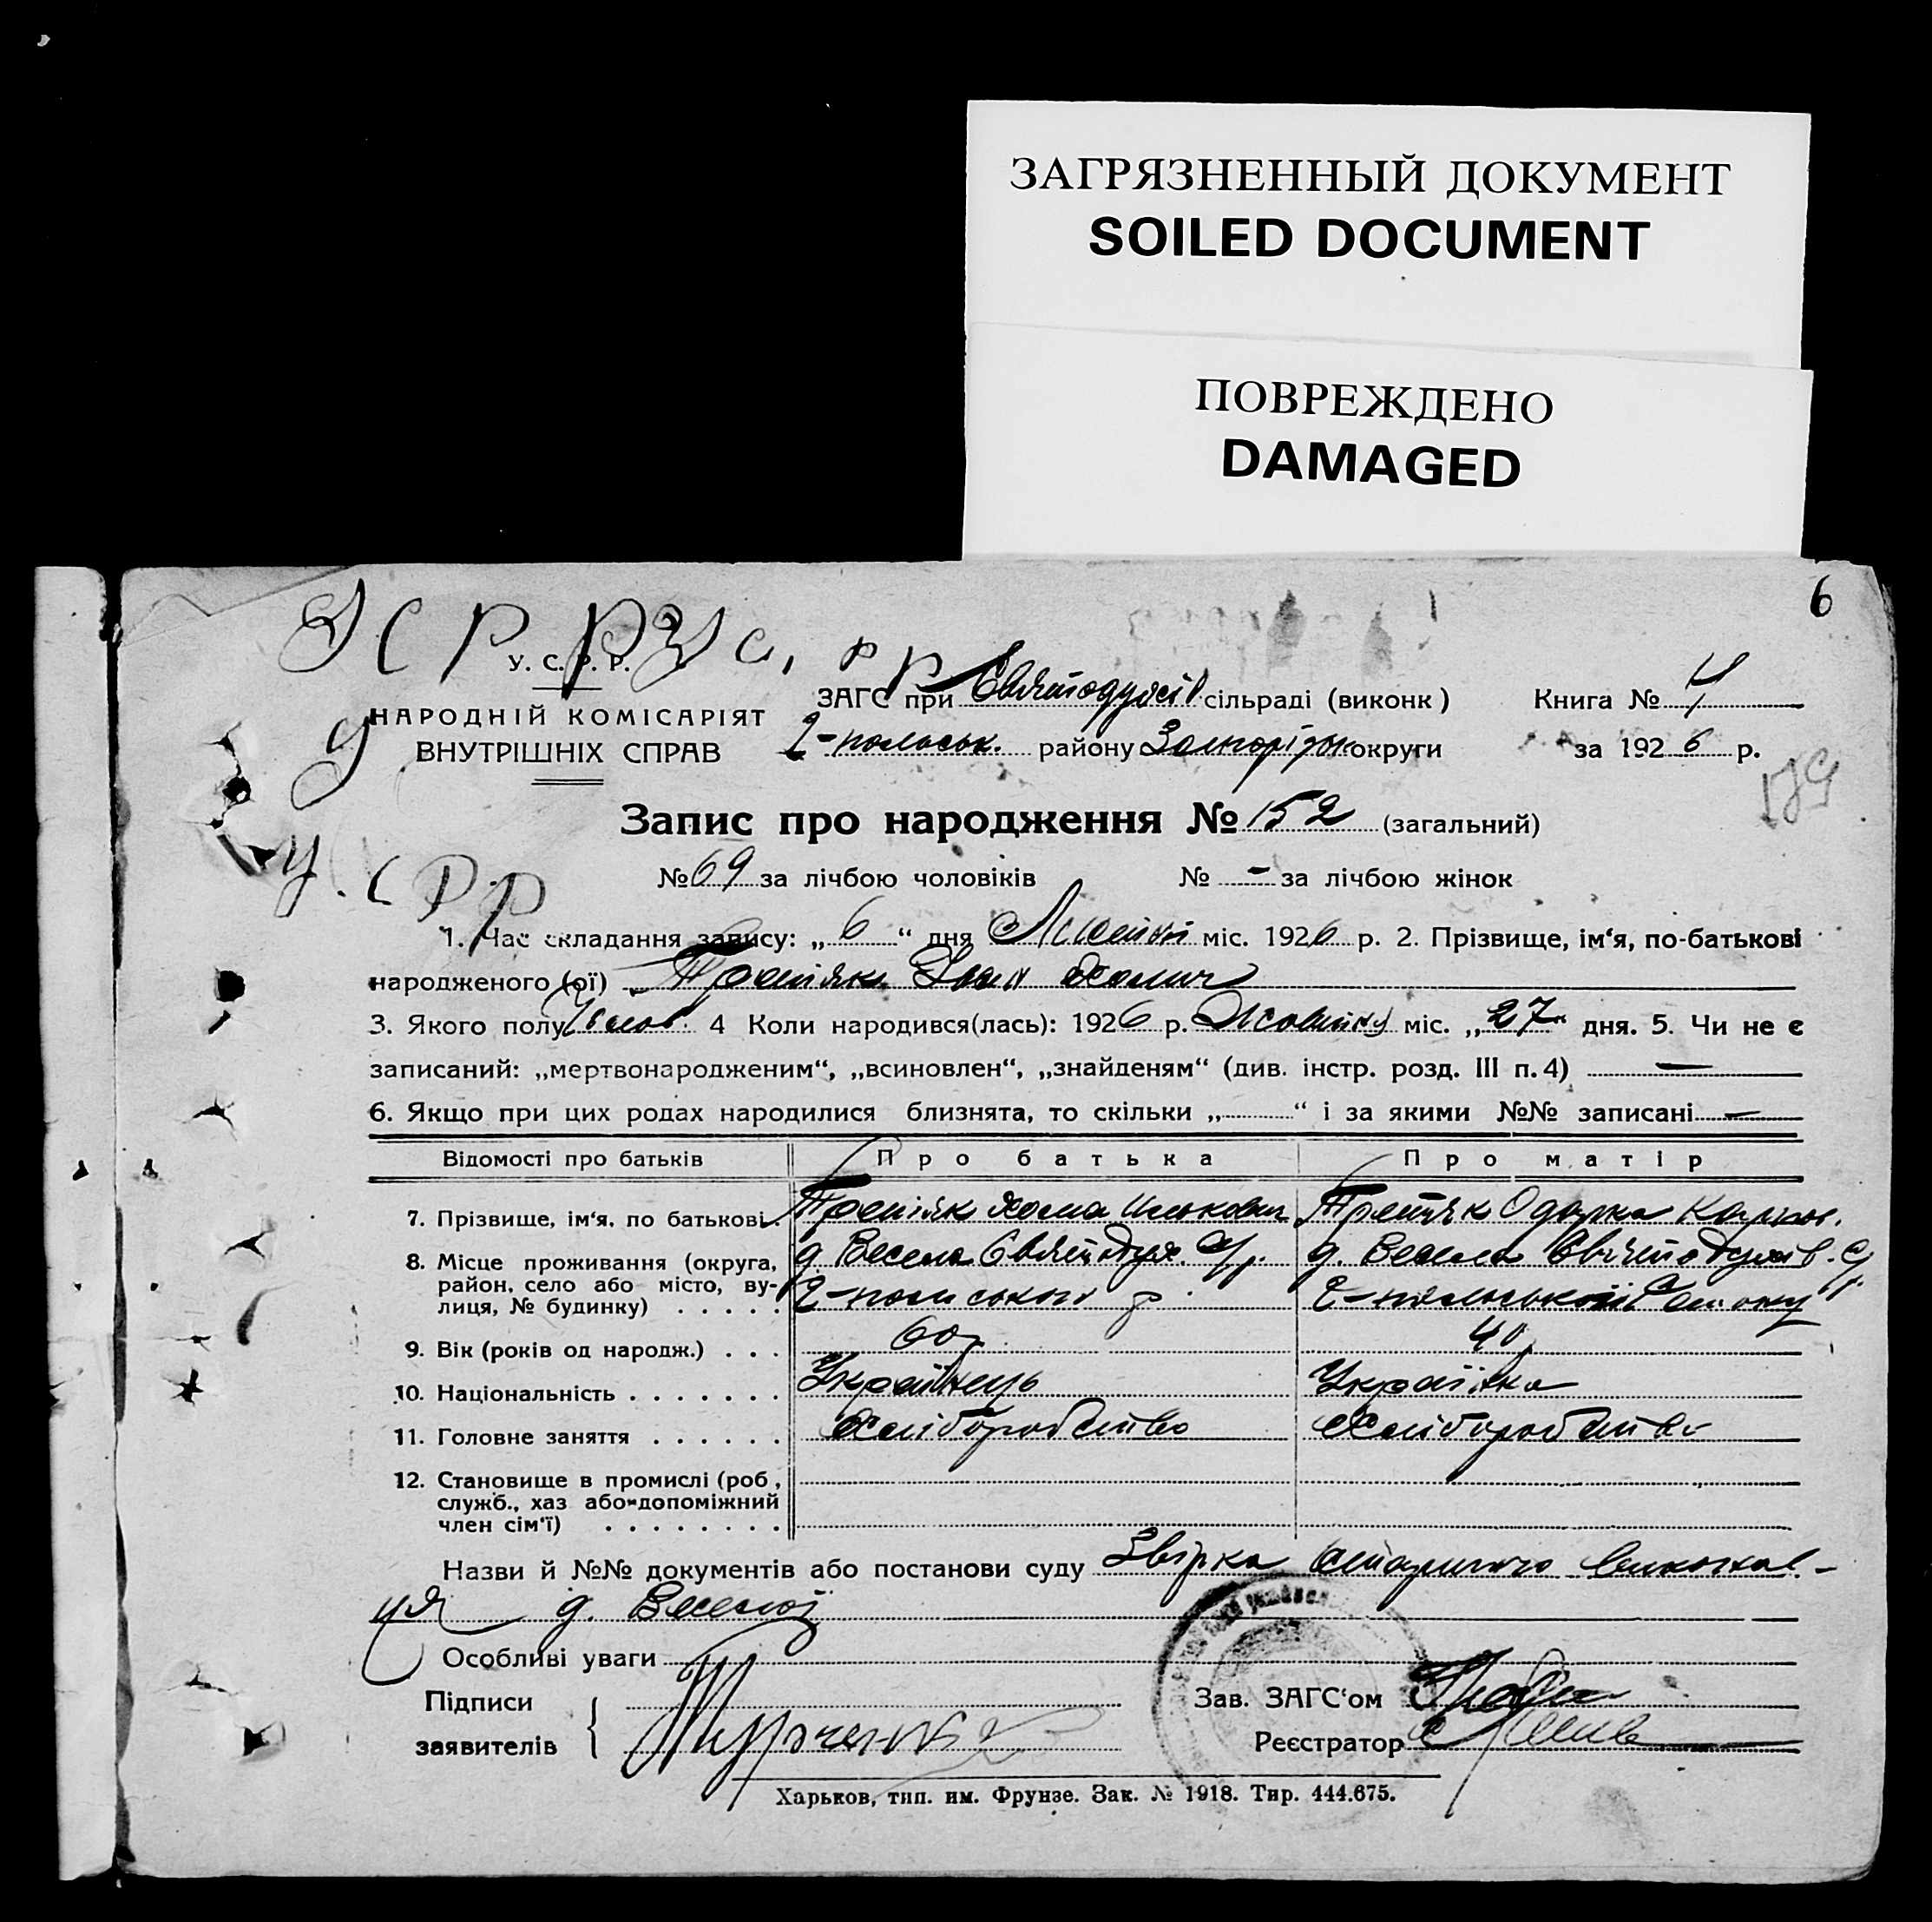 ЗАГРЯЗНЕННЫЙ ДОКУМЕНТ
SOILED DOCUMENT
ПОВРЕЖДЕНО
DAMAGED
6
У С Р Р У С. Р Р
У. С. Р. Р.
НАРОДНІЙ КОМІСАРІЯТ
ВНУТРІШНІХ СПРАВ
У
У. С Р Р
ЗАГС при Святодухів сільраді (виконк) Книга № 4
2-польськ. району Запоріжн округи за 1926 р.
Запис про народження № 152 (загальний)
№ 69 за лічбою чоловіків № - за лічбою жінок
1. Час складання запису: „6“ дня міс. 1926 р. 2. Прізвище, ім‘я, по-батькові
народженого (ої) Третяк Іван Хомич
3. Якого полу Чолов. 4 Коли народився(лась): 1926 р. міс. „27“ дня. 5. Чи не є
записаний: „мертвонародженим“, „всиновлен“, „знайденям“ (див. інстр. розд. III п. 4) —
6. Якщо при цих родах народилися близнята, то скільки „ “ і за якими №№ записані —
Відомості про батьків Про батька Про матір
7. Прізвище, ім‘я, по батькові. Третяк Хома Третяк Одарка
8. Місце проживання (округа, район, село або місто, вулиця, № будинку) д. Весела Святодух. С/р. д. Весела Святодухів. С/р
2-польського р 2-польської
9. Вік (років од народж.) . . . 60р 40р
10. Національність . . . . . . . Українець Українка
11. Головне заняття . . . . . . Хліборобство Хліборобство
12. Становище в промислі (роб, служб., хаз або допоміжний член сім‘ї) . . . . . . . .
Назви й №№ документів або постанови суду Звірка виконав-
ця д. Веселої
Особливі уваги
Підписи
заявителів
Зав. ЗАГС‘ом
Реєстратор
Харьков, тип. им. Фрунзе. Зак. № 1918. Тир. 444.675.